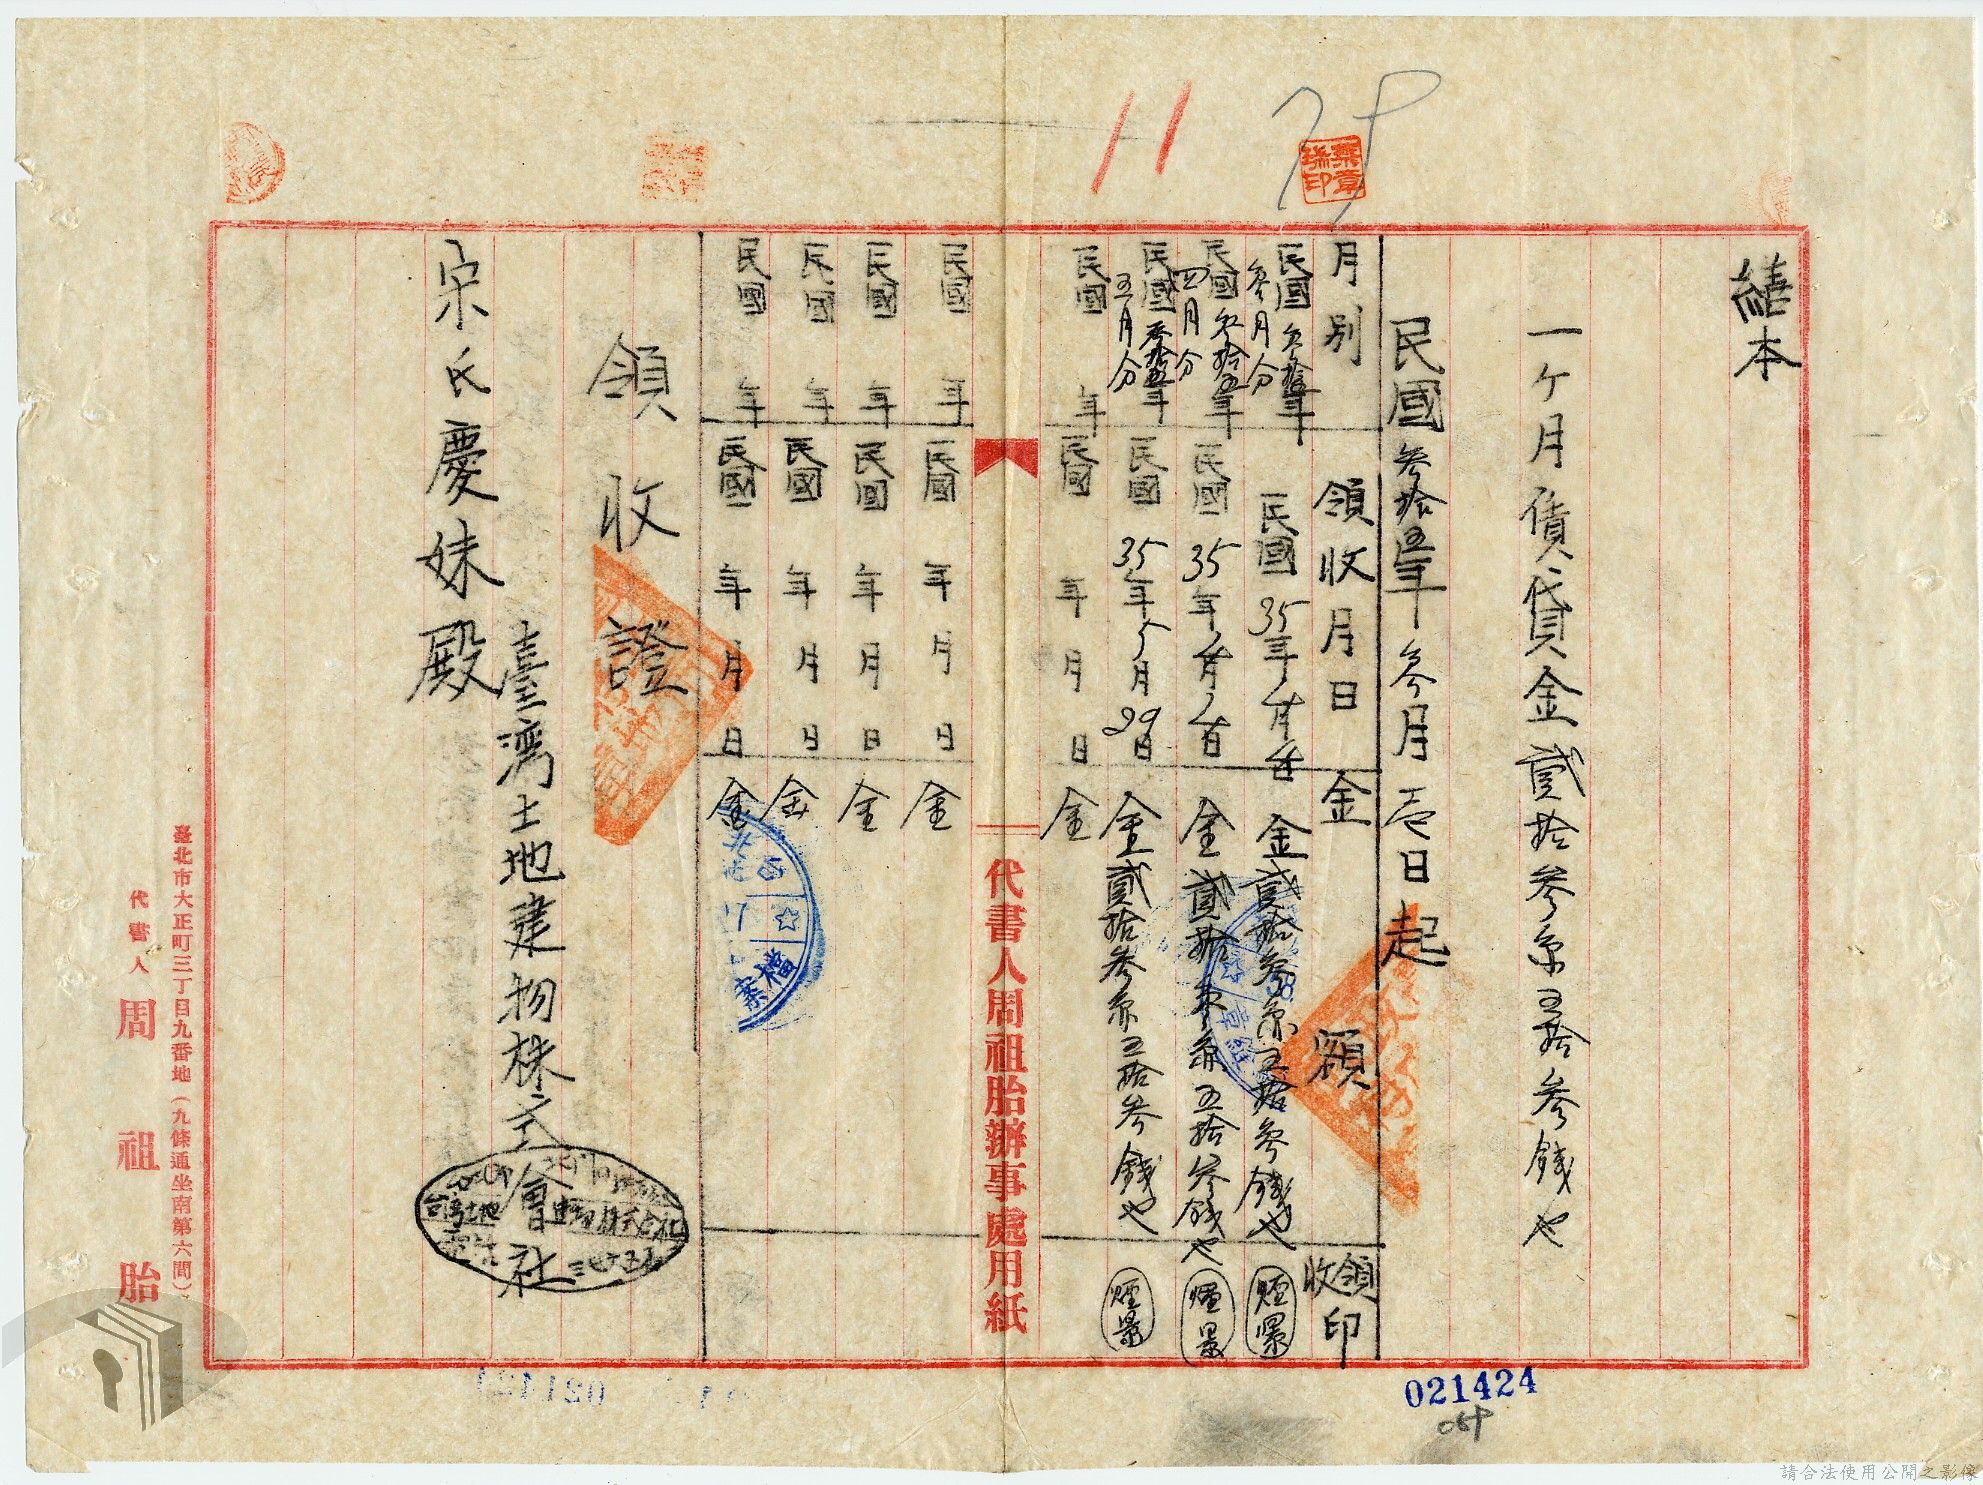 繕本
一ケ月賃貸金貳拾參円五拾參錢也
民國參拾五年參月壱日起
月別 領收月日 金額 領收印
民國參拾五年參月分 民國35年 月 日 金貳拾參円五拾參錢也
民國參拾五年四月分 民國35年 月 日 金貳拾參円五拾參錢也
民國參拾五年五月分 民國35年5月29日 金貳拾參円五拾參錢也
民國 年 民國 年 月 日 金
代書人周祖胎辦事處用紙
民國 年 民國 年 月 日 金
民國 年 民國 年 月 日 金
民國 年 民國 年 月 日 金
民國 年 民國 年 月 日 金
領收證
臺湾土地建物株式會社
宋氏慶妹殿
臺北市大正町三丁目九番地(九條通坐南第六間)
代書人 周祖胎
11
葉章瑞印
檔案
021424
請合法使用公開之影像